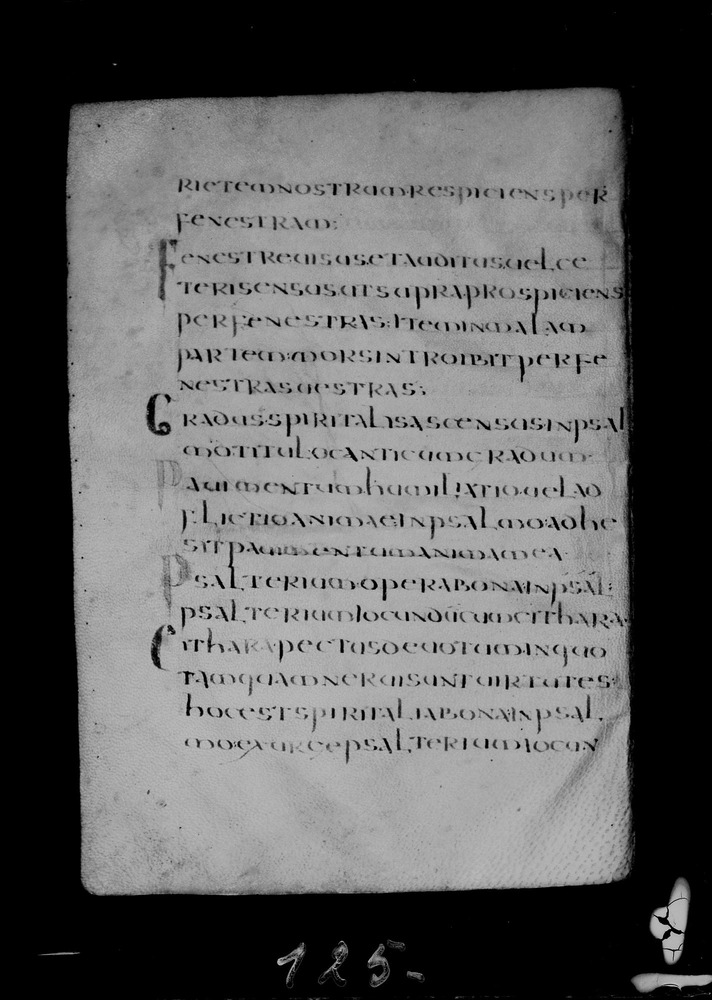 RIETEM NOSTRAM RESPICIENS PER
FENESTRAM:
FENESTRE UISUS ET AUDITUS UEL CE
TERI SENSUS UT SUPRA PROSPICIENS
PER FENESTRAS: ITEM IN MALAM
PARTEM: MORS INTROIBIT PER FE
NESTRAS UESTRAS:
GRADUS SPIRITALIS ASCENSUS IN PSAL
MO TITULO CANTICUM GRADUUM
PAUIMENTUM HUMILIATIO UEL AD
FLICTIO ANIMAE IN PSALMO ADHE
SIT PAUIMENTUM ANIMA MEA
PSALTERIUM OPERA BONA IN PSAL
PSALTERIUM IOCUNDUCUM CITHARA
CITHARA PECTUS DEUOTUM IN QUO
TAMQUAM NERUI SUNT UIRTUTES
HOC EST SPIRITALIA BONA IN PSAL
MO EXURGE PSALTERIUM IOCUN
125.